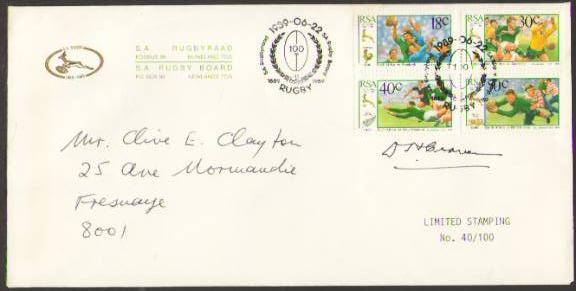 S.A. RUGBYRAAD
POSBUS 99 NUWELAND 7725
S.A. RUGBY BOARD
P.O. BOX 99 NEWLANDS 7725
1989-06-22
SA Rugbyraad SA Rugby Board
100
1889 1989
RUGBY
RSA 18c
RSA 30c
RSA 40c
RSA 50c
1989-06-22
100
RUGBY
Mr. Clive E. Clayton
25 Ave Normandie
Fresnaye
8001
D H Craven
LIMITED STAMPING
No. 40/100